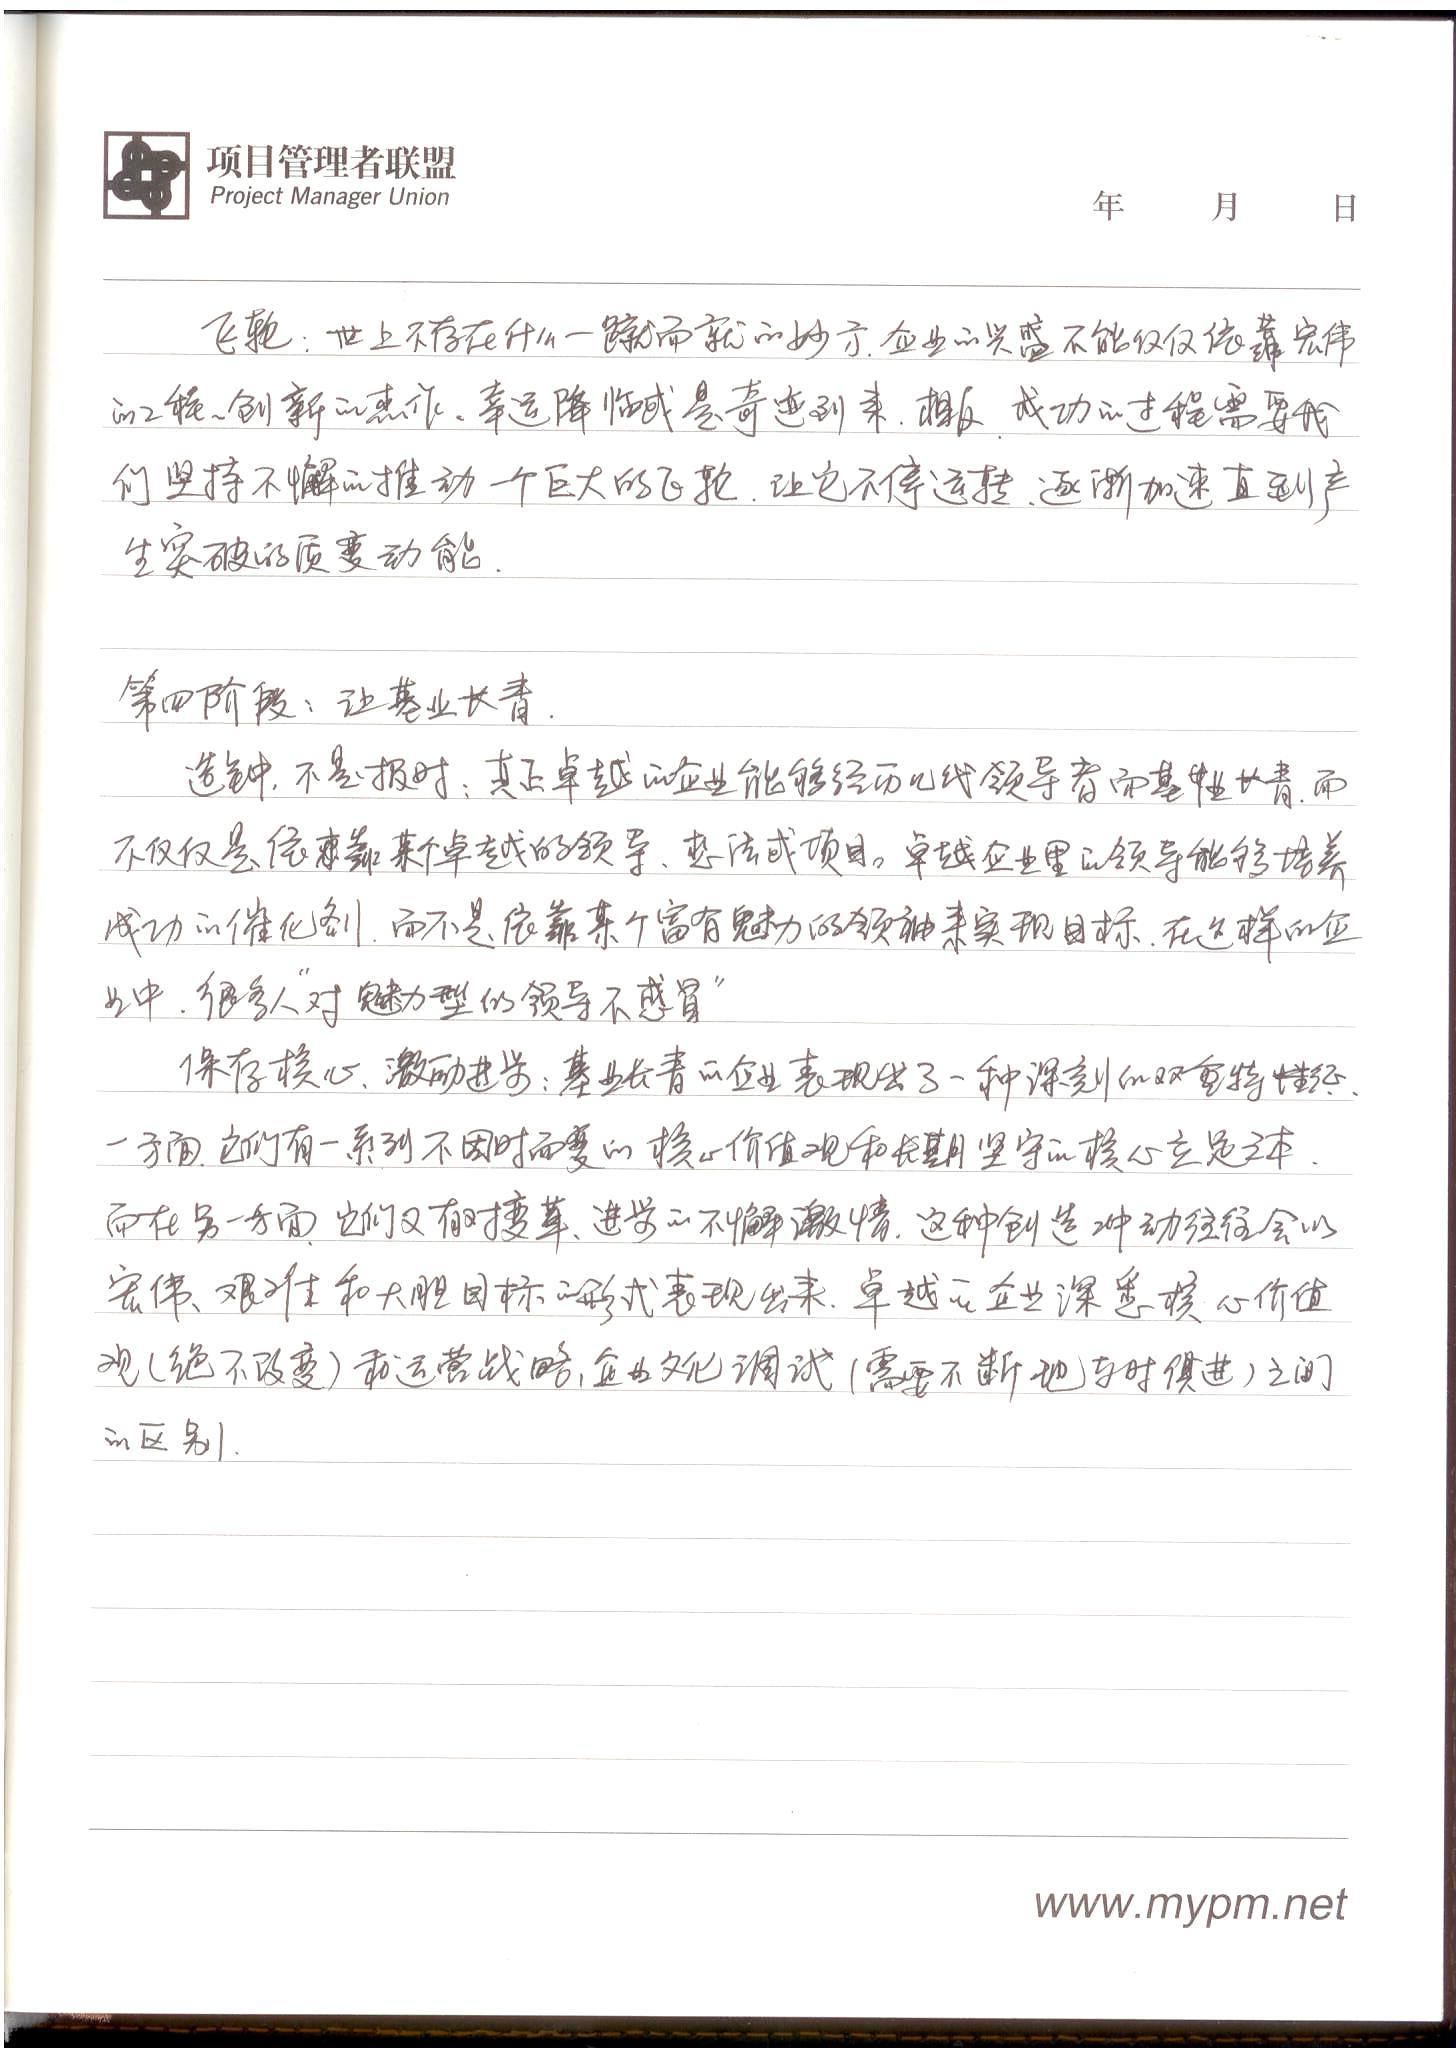 项目管理者联盟
Project Manager Union
年 月 日
飞轮：世上不存在什么一蹴而就的妙方.企业的兴盛不能仅仅依靠宏伟
的工程、创新的杰作、幸运降临或是奇迹到来.相反.成功的过程需要我
们坚持不懈的推动一个巨大的飞轮.让它不停运转、逐渐加速直到产
生突破的质变动能.
第四阶段：让基业长青.
造钟.不是报时：真正卓越的企业能够经历几代领导者而基业长青.而
不仅仅是依靠某个卓越的领导、想法或项目。卓越企业里的领导能够培养
成功的催化剂.而不是依靠某个富有魅力的领袖来实现目标.在这样的企
业中.很多人“对魅力型的领导不感冒”
保存核心、激励进步：基业长青的企业表现出了一种深刻的双重特性.
一方面.它们有一系列不因时而变的核心价值观和长期坚守的核心立足之本.
而在另一方面.它们又有对变革、进步的不懈激情.这种创造冲动往往会以
宏伟、艰难和大胆目标的形式表现出来.卓越的企业深悉核心价值
观(绝不改变)和运营战略,企业文化调试(需要不断地与时俱进)之间
的区别.
www.mypm.net